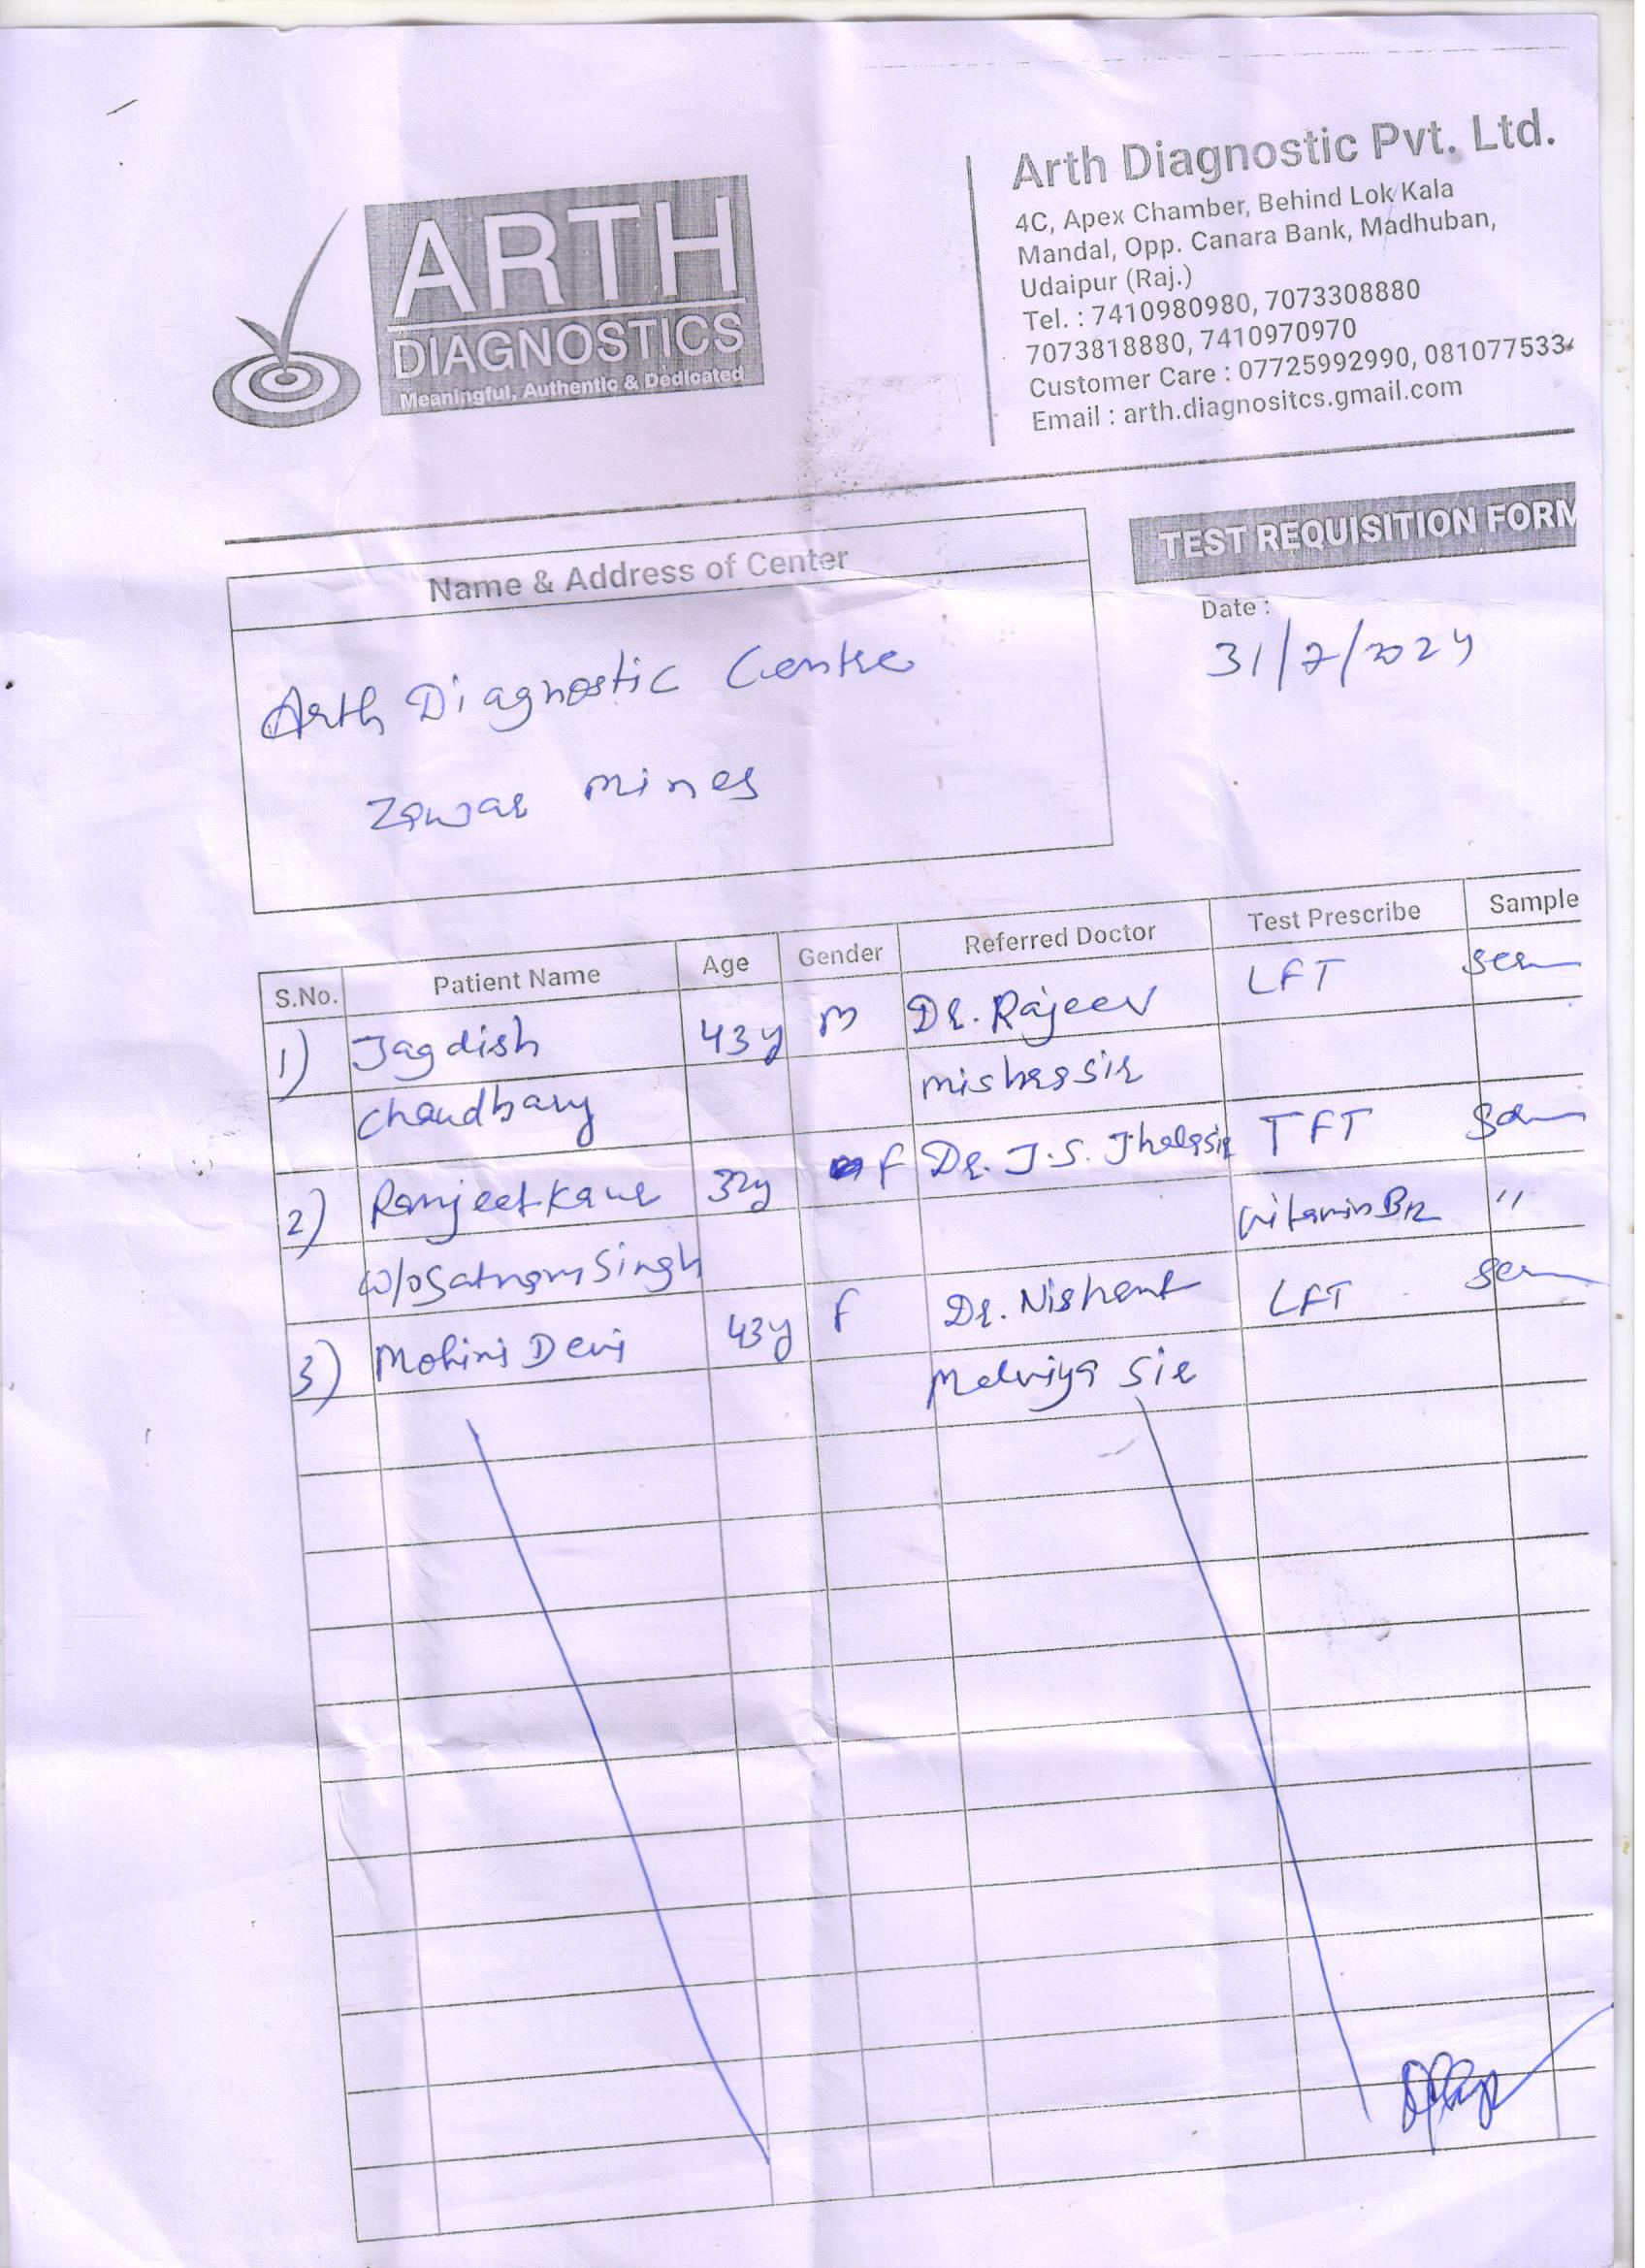 ARTH
DIAGNOSTICS
Meaningful, Authentic & Dedicated
Arth Diagnostic Pvt. Ltd.
4C, Apex Chamber, Behind Lok Kala
Mandal, Opp. Canara Bank, Madhuban,
Udaipur (Raj.)
Tel. : 7410980980, 7073308880
7073818880, 7410970970
Customer Care : 07725992990, 081077533
Email : arth.diagnositcs.gmail.com
TEST REQUISITION FORM
Name & Address of Center
Date :
31/7/2024
Arth Diagnostic Centre
Zawar mines
S.No. Patient Name Age Gender Referred Doctor Test Prescribe Sample
1) Jagdish 43y M Dr. Rajeev LFT
Chaudhary Mishra sir
2) Ramjeet Kaur 32y F Dr. J.S. Jhala sir TFT
W/o Satnam Singh Vitamin B12 "
3) Mohini Devi 43y F Dr. Nishant LFT
Malviya sir